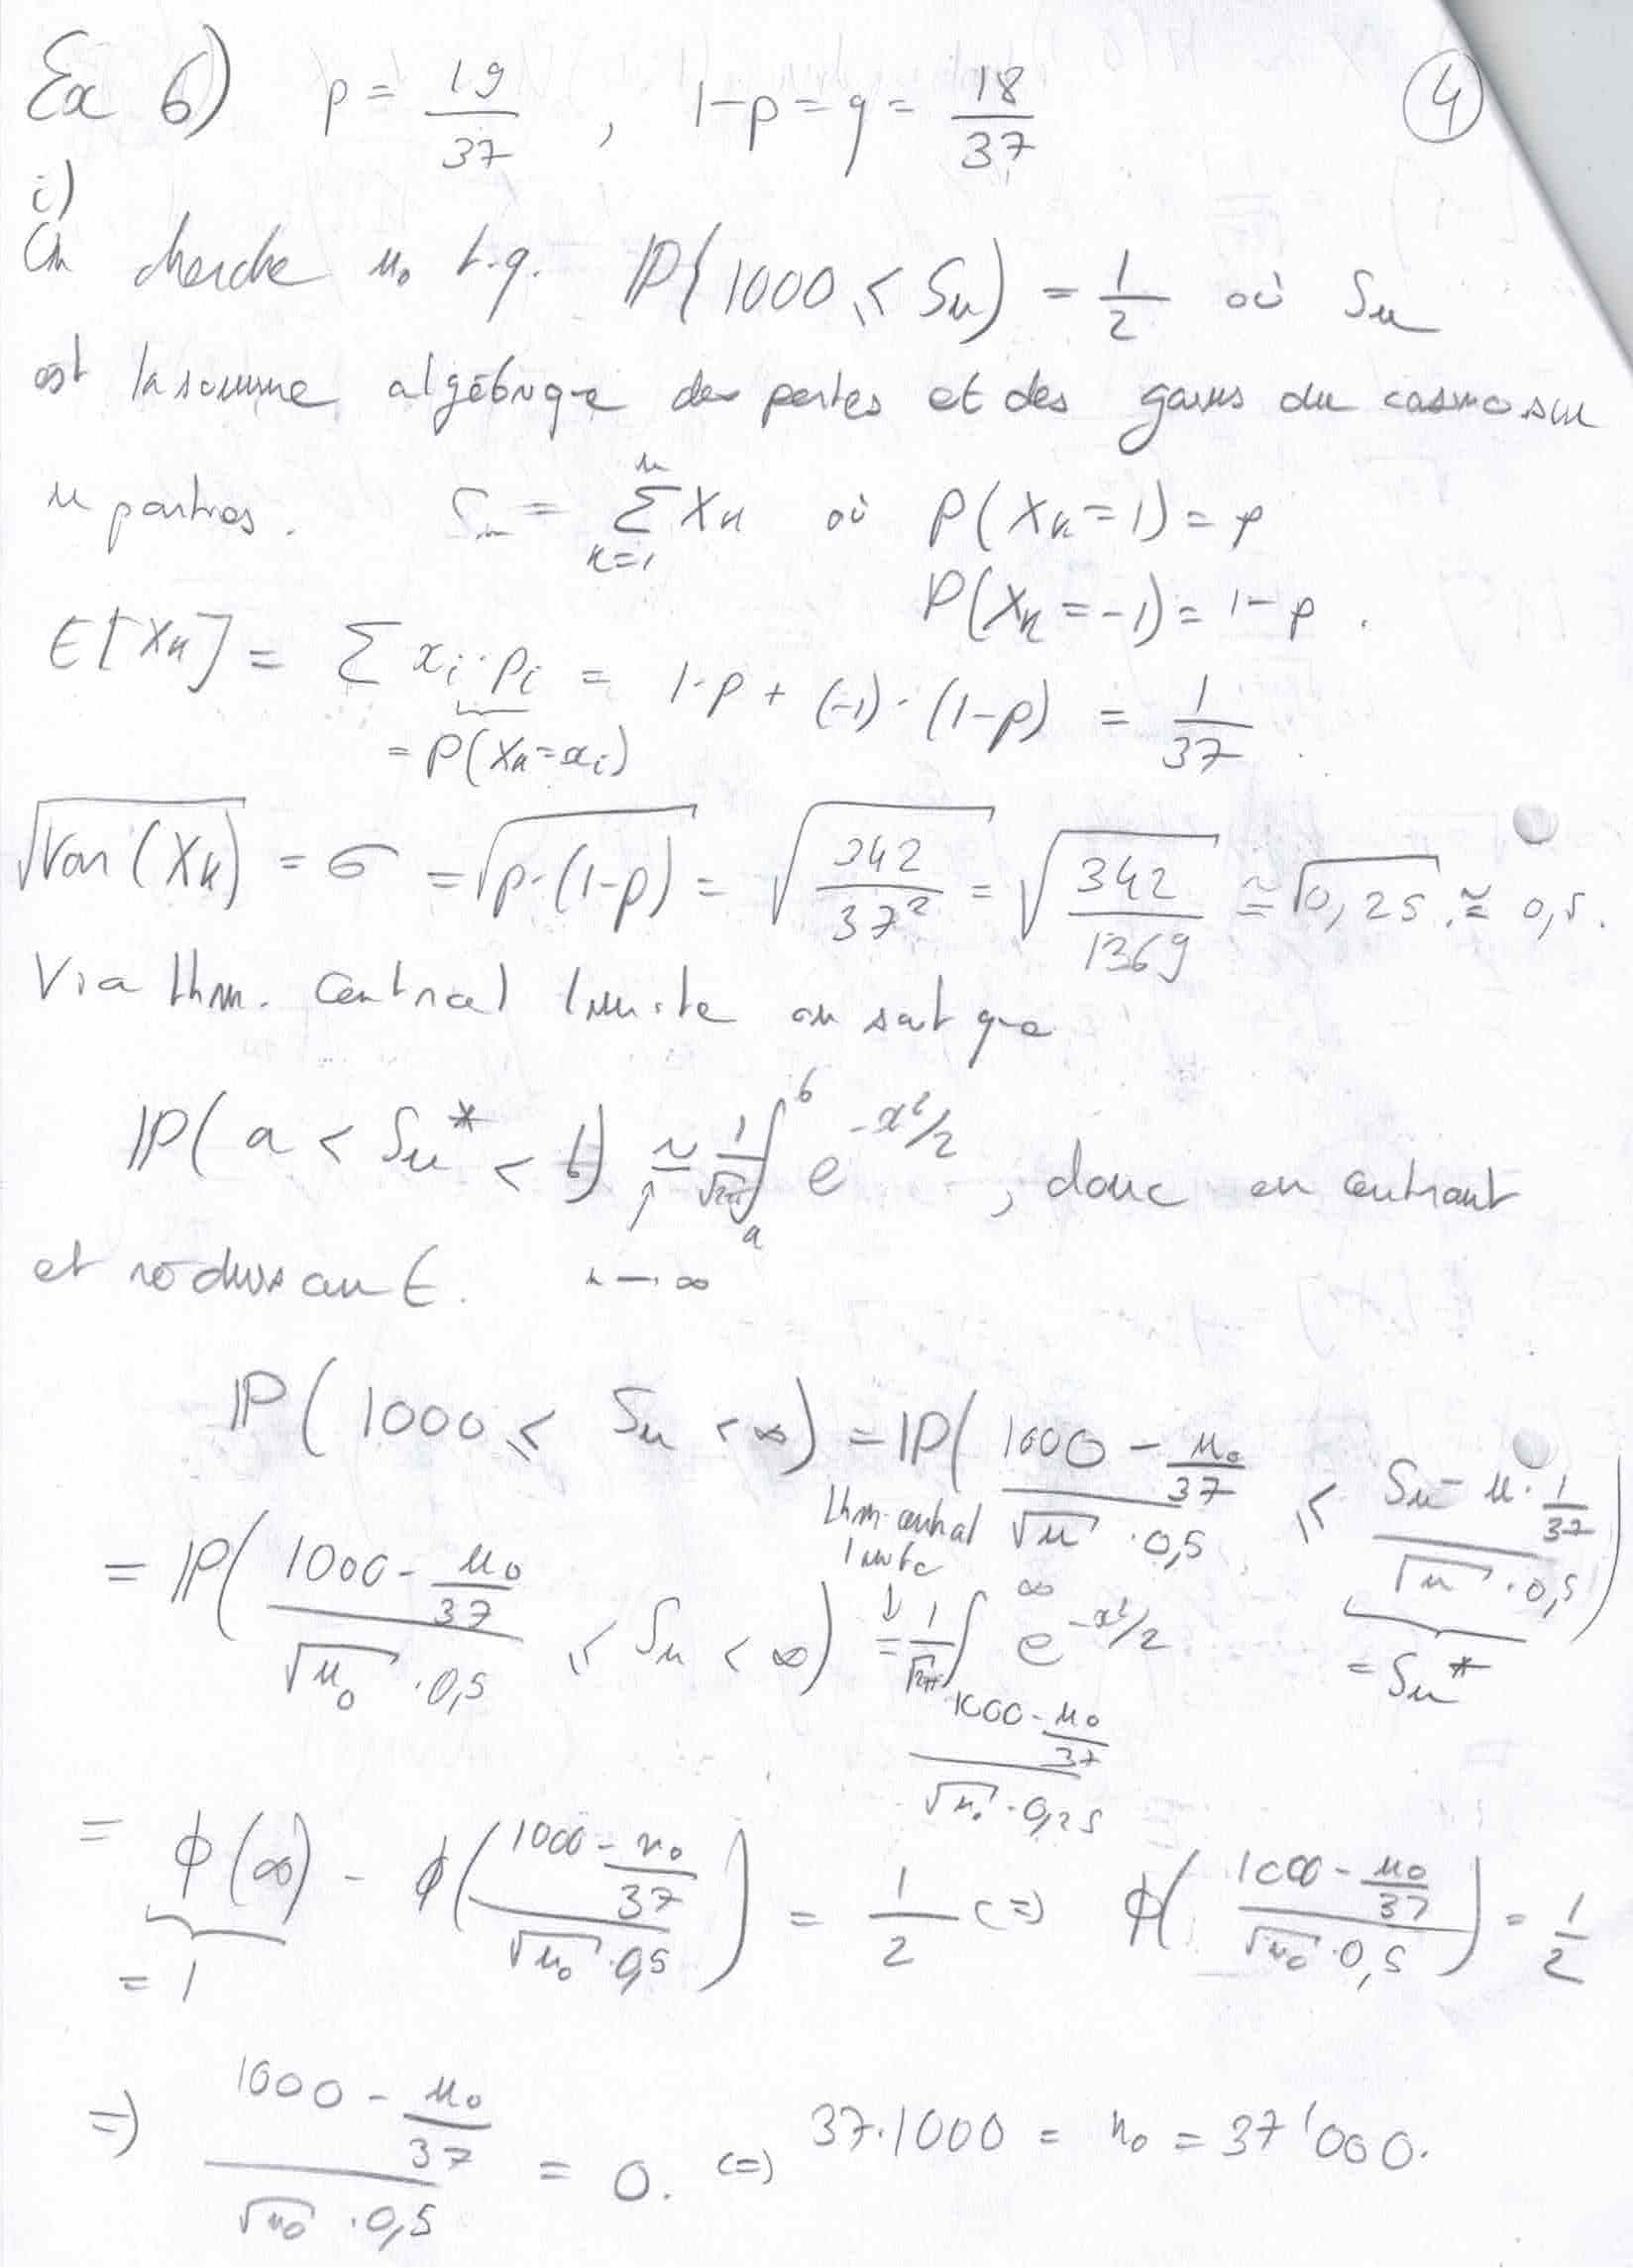 Ex 6) p = 19/37 , 1-p = q = 18/37 ④
i)
On cherche n₀ t.q. ℙ(1000 ≤ Sn) = 1/2 où Sn
est la somme algébrique des pertes et des gains du casino sur
n parties. Sn = Σ_{k=1}^{n} Xk où P(Xk=1) = p
P(Xk=-1) = 1-p .
E[Xk] = Σ xi·pi = 1·p + (-1)·(1-p) = 1/37 .
= P(Xk=xi)
√Var(Xk) = σ = √p·(1-p) = √(342/37²) = √(342/1369) ≅ √0,25 . ≅ 0,5.
Via thm. central limite on sait que
ℙ(a < Sn* < b) ≃ 1/√2π ∫_a^b e^{-x²/2} , donc en centrant
et réduisant. n → ∞
ℙ(1000 ≤ Sn < ∞) = ℙ((1000 - n₀/37)/(√n · 0,5) ≤ (Sn - n·1/37)/(√n · 0,5))
= Sn*
thm central limite ↓
= ℙ((1000 - n₀/37)/(√n₀ · 0,5) ≤ Sn < ∞) = 1/√2π ∫_{(1000 - n₀/37)/(√n₀ · 0,25)}^∞ e^{-x²/2}
= ϕ(∞) - ϕ((1000 - n₀/37)/(√n₀ · 0,5)) = 1/2 (=) ϕ((1000 - n₀/37)/(√n₀ · 0,5)) = 1/2
= 1
=) (1000 - n₀/37)/(√n₀ · 0,5) = 0. (=) 37·1000 = n₀ = 37'000.